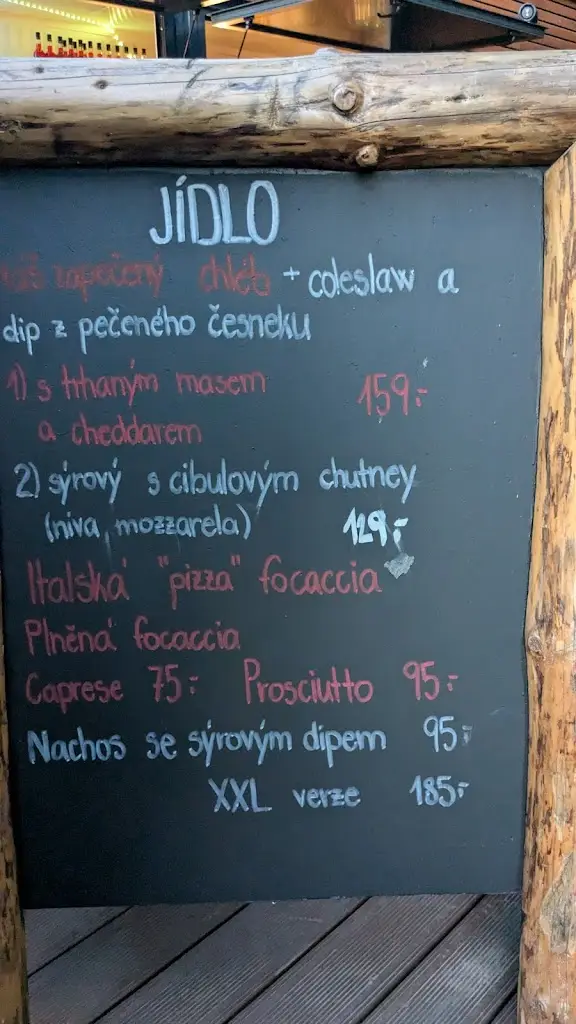 JÍDLO
náš zapečený chléb + coleslaw a
dip z pečeného česneku
1) s trhaným masem 159,-
a cheddarem
2) sýrový s cibulovým chutney
(niva, mozzarela) 129,-
Italská "pizza" focaccia
Plněná focaccia
Caprese 75,- Prosciutto 95,-
Nachos se sýrovým dipem 95,-
XXL verze 185,-